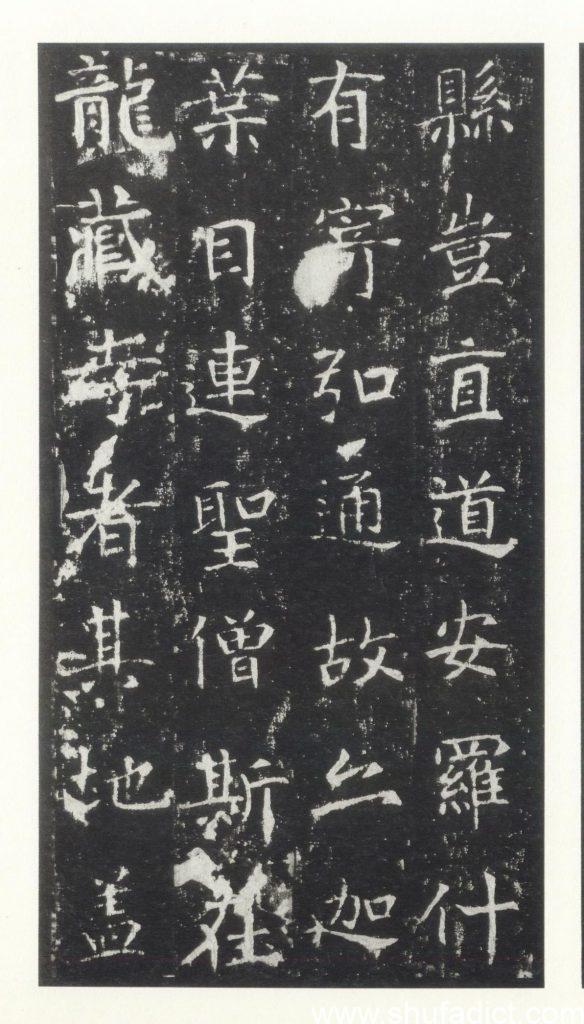 縣豈直道安羅什
有寄弘通故迦
葉目連聖僧斯在
龍藏寺者其地盖
www.shufadict.com